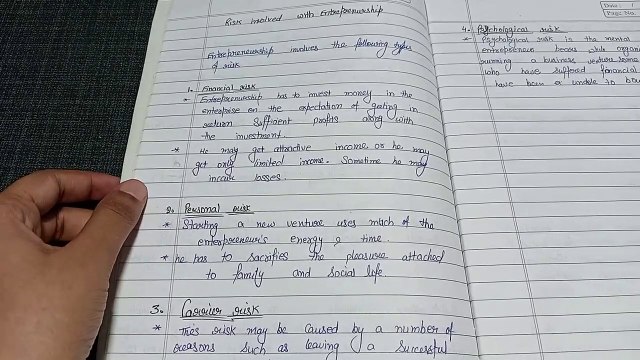 Risk involved with Entrepreneurship
Entrepreneurship involves the following types
of risk
1. Financial risk
* Entrepreneurship has to invest money in the
enterprise on the expectation of getting in
return sufficient profits along with
the investment.
* He may get attractive income or he may
get only limited income. Sometime he may
incur losses.
2. Personal risk
* Starting a new venture uses much of the
entrepreneur's energy & time.
* he has to sacrifies the pleasure attached
to family and social life.
3. Carrier risk
* This risk may be caused by a number of
reasons such as leaving a successful
Date: /
Page No.
4. Psychological risk
* Psychological risk is the mental
entrepreneur bears while organi
running a business venture
who have suffered financial
have been unable to